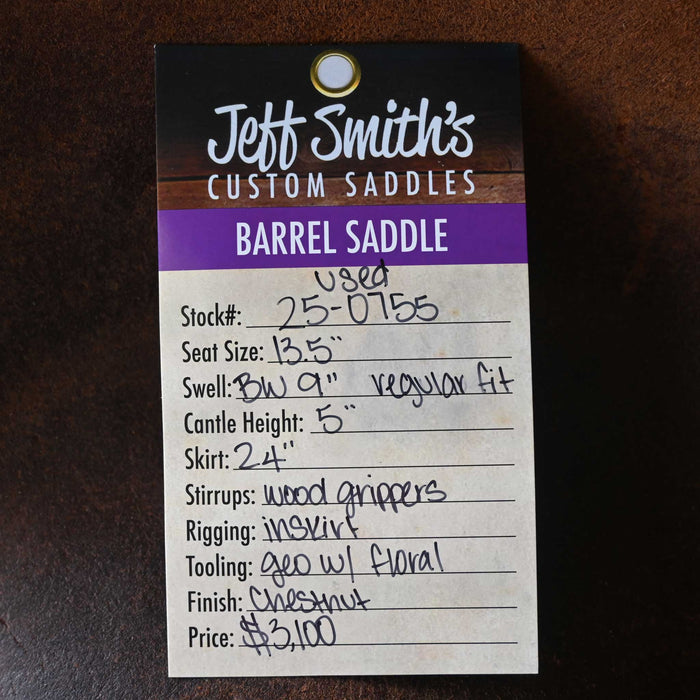 Jeff Smith's
CUSTOM SADDLES
BARREL SADDLE
used
Stock#: 25-0755
Seat Size: 13.5"
Swell: BW 9" regular fit
Cantle Height: 5"
Skirt: 24"
Stirrups: wood grippers
Rigging: inskirt
Tooling: geo w/ floral
Finish: Chestnut
Price: $3,100